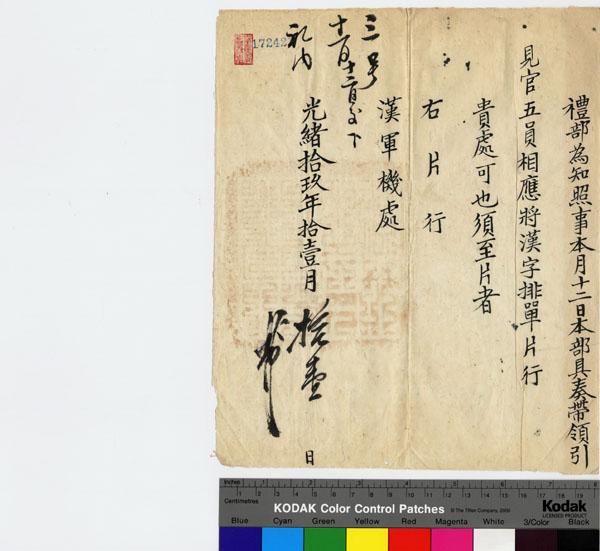 禮部為知照事本月十二日本部具奏帶領引
見官五員相應將漢字排單片行
貴處可也須至片者
右片行
漢軍機處
光緒拾玖年拾壹月
拾壹
日
三号
十一月十二日
172427
Inches
Centimetres
KODAK Color Control Patches
© The Tiffen Company, 2000
Kodak
LICENSED PRODUCT
Blue Cyan Green Yellow Red Magenta White 3/Color Black